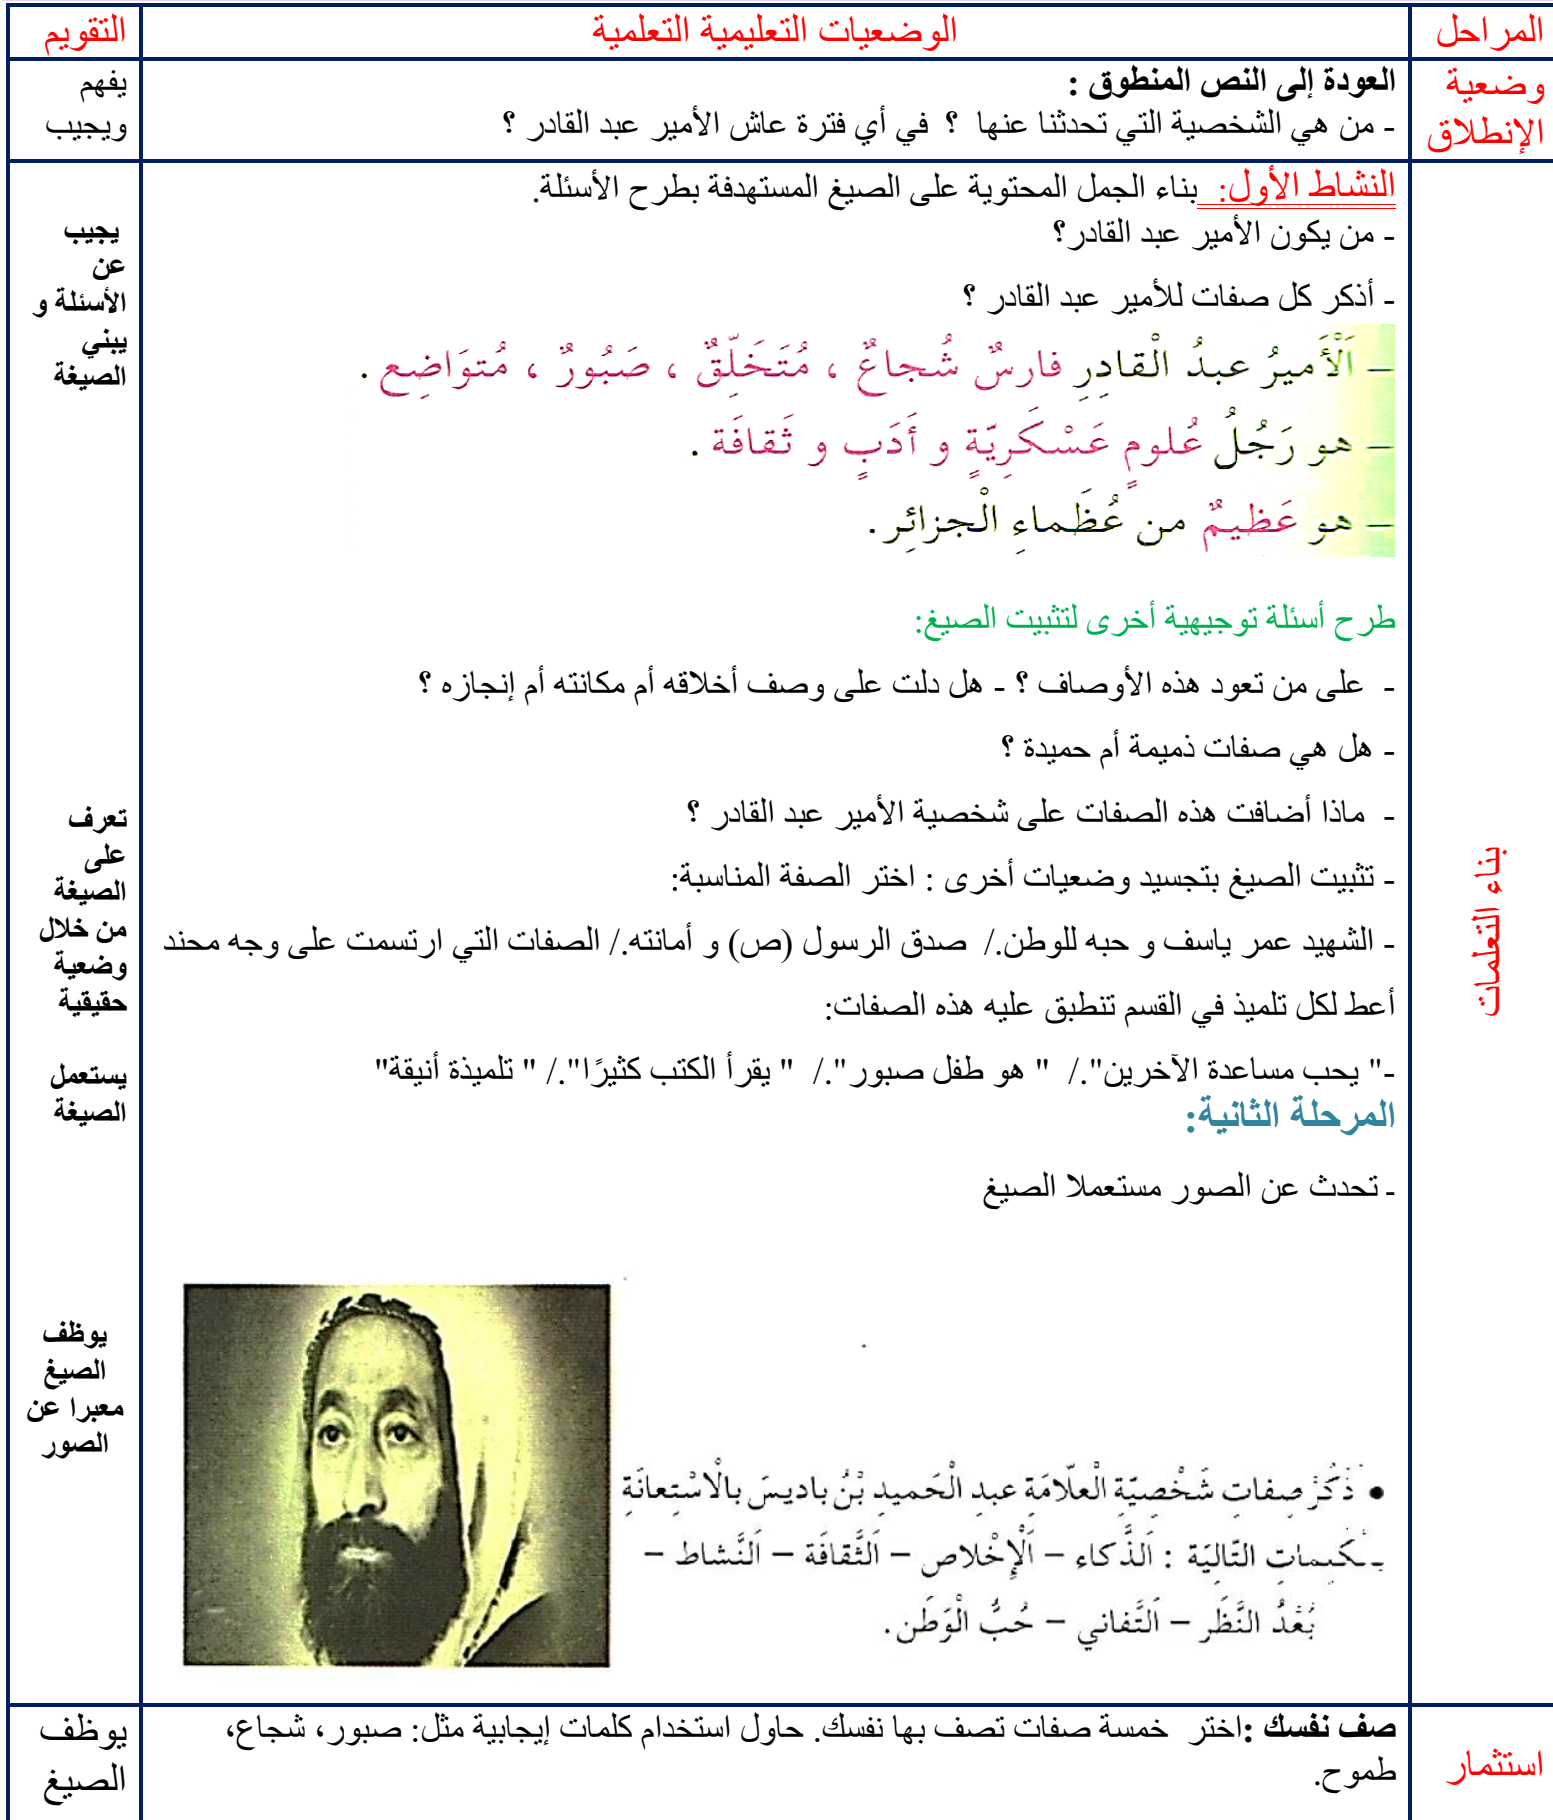 المراحل
الوضعيات التعليمية التعلمية
التقويم
وضعية
الإنطلاق
العودة إلى النص المنطوق :
- من هي الشخصية التي تحدثنا عنها ؟ في أي فترة عاش الأمير عبد القادر ؟
يفهم
ويجيب
بناء التعلمات
النشاط الأول: بناء الجمل المحتوية على الصيغ المستهدفة بطرح الأسئلة.
- من يكون الأمير عبد القادر؟
- أذكر كل صفات للأمير عبد القادر ؟
– اَلْأَميرُ عبدُ الْقادِرِ فارسٌ شُجاعٌ ، مُتَخَلِّقٌ ، صَبُورٌ ، مُتوَاضِع .
– هو رَجُلُ عُلومٍ عَسْكَرِيّةٍ و أَدَبٍ و ثَقافَة .
– هو عَظيمٌ من عُظَماءِ الْجزائِر.
طرح أسئلة توجيهية أخرى لتثبيت الصيغ:
- على من تعود هذه الأوصاف ؟ - هل دلت على وصف أخلاقه أم مكانته أم إنجازه ؟
- هل هي صفات ذميمة أم حميدة ؟
- ماذا أضافت هذه الصفات على شخصية الأمير عبد القادر ؟
- تثبيت الصيغ بتجسيد وضعيات أخرى : اختر الصفة المناسبة:
- الشهيد عمر ياسف و حبه للوطن./ صدق الرسول (ص) و أمانته./ الصفات التي ارتسمت على وجه محند
أعط لكل تلميذ في القسم تنطبق عليه هذه الصفات:
-" يحب مساعدة الآخرين"./ " هو طفل صبور"./ " يقرأ الكتب كثيرًا"./ " تلميذة أنيقة"
المرحلة الثانية:
- تحدث عن الصور مستعملا الصيغ
• ذَكَرْ صِفاتِ شَخْصِيّةِ الْعلّامَةِ عبدِ الْحَميدِ بْنُ باديسَ بالْاسْتِعانَةِ
التّالِيَة : اَلذَّكاء – اَلْإِخْلاص – اَلثَّقافَة – اَلنَّشاط –
بُعْدُ النَّظَر – اَلتَّفاني – حُبُّ الْوَطَن.
يجيب
عن
الأسئلة و
يبني
الصيغة
تعرف
على
الصيغة
من خلال
وضعية
حقيقية
يستعمل
الصيغة
يوظف
الصيغ
معبرا عن
الصور
استثمار
صف نفسك :اختر خمسة صفات تصف بها نفسك. حاول استخدام كلمات إيجابية مثل: صبور، شجاع،
طموح.
يوظف
الصيغ